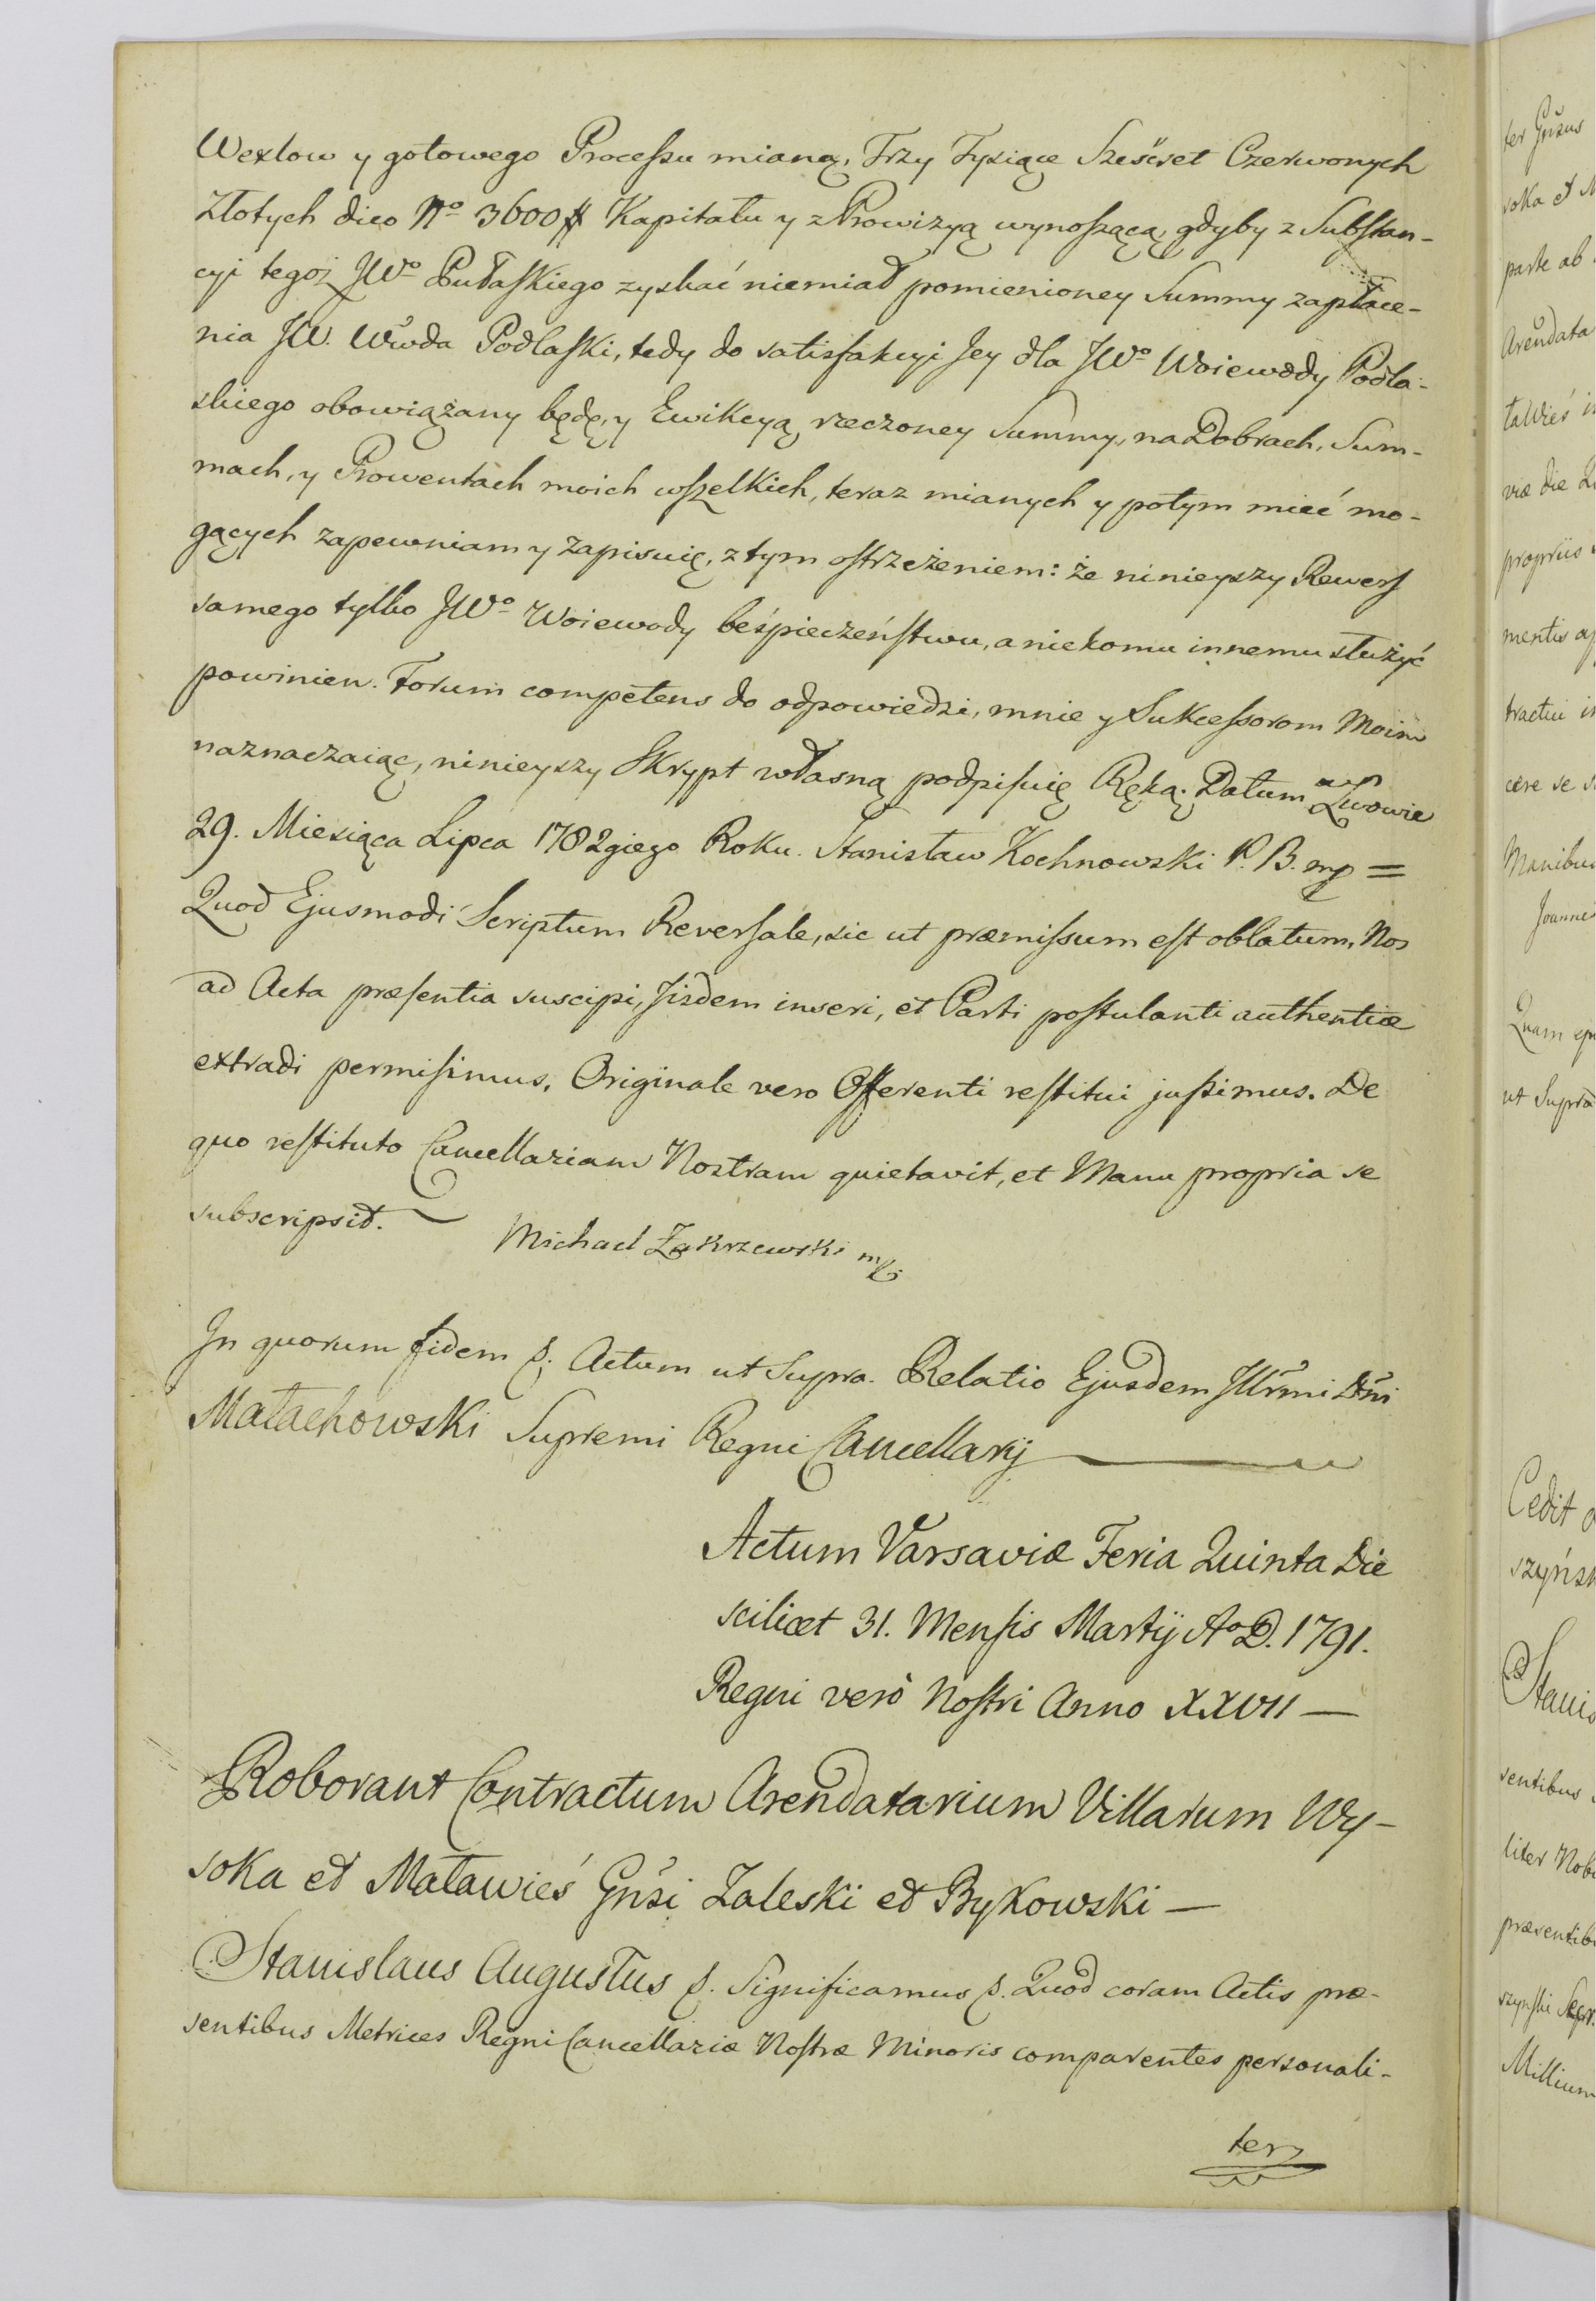 Wexlow y gotowego Processu mianą, Trzy Tysiące Sześćset Czerwonych
Złotych dico Nº 3600 # Kapitału y z Prowizyą wynoszącą, gdyby z Substan-
cyi tegoż JWº Pułaskiego zyskać niemiał pomienioney Summy zapłace-
nia JW. Wwda Podlaski, tedy do satisfakcyi Jey dla JWº Woiewody Podla-
skiego obowiązany będę, y Ewikcyą rzeczoney Summy, na Dobrach, Sum-
mach, y Prowentach moich wszelkich, teraz mianych y potym mieć mo-
gących zapewniam y zapisuię, z tym ostrzeżeniem: że ninieyszy Rewers
samego tylko JWº Woiewody beśpieczeństwu, a niekomu innemu służyć
powinien. Forum competens do odpowiedzi, mnie y Sukcessorom Moim
naznaczaiąc, ninieyszy Skrypt własną podpisuię Ręką. Datum we Lwowie
29. Miesiąca Lipca 1782giego Roku. Stanisław Kochnowski P. B. mp =
Quod Ejusmodi Scriptum Reversale, sic ut præmissum est oblatum, Nos
ad Acta præsentia suscipi, Jisdem inseri, et Parti postulanti authentice
extradi permisimus, Originale vero Offerenti restitui jussimus. De
quo restituto Cancellariam Nostram quietavit, et Manu propria se
subscripsit. Michael Zakrzewski mp.
In quorum fidem &. Actum ut Supra. Relatio Ejusdem Jllrmi Dni
Małachowski Supremi Regni Cancellarij
Actum Varsaviæ Feria Quinta Die
scilicet 31. Mensis Martij Aº D. 1791.
Regni verò Nostri Anno XXVII —
Roborant Contractum Arendatarium Villarum Wy-
soka et Maławieś Gnsi Zaleski et Bykowski —
Stanislaus Augustus &. Significamus &. Quod coram Actis præ-
sentibus Metrices Regni Cancellariæ Nostræ Minoris comparentes personali-
ter
ter Gnsus
soka et M
parte ab
Arendata
ławieś in
viæ die
propriis
mentis
tractui in
cere se
Manibus
Joannes
Quam
ut Supra
Cedit
szyńsk
Stanis
sentibus
liter Nob
præsentib
szyński
Millium